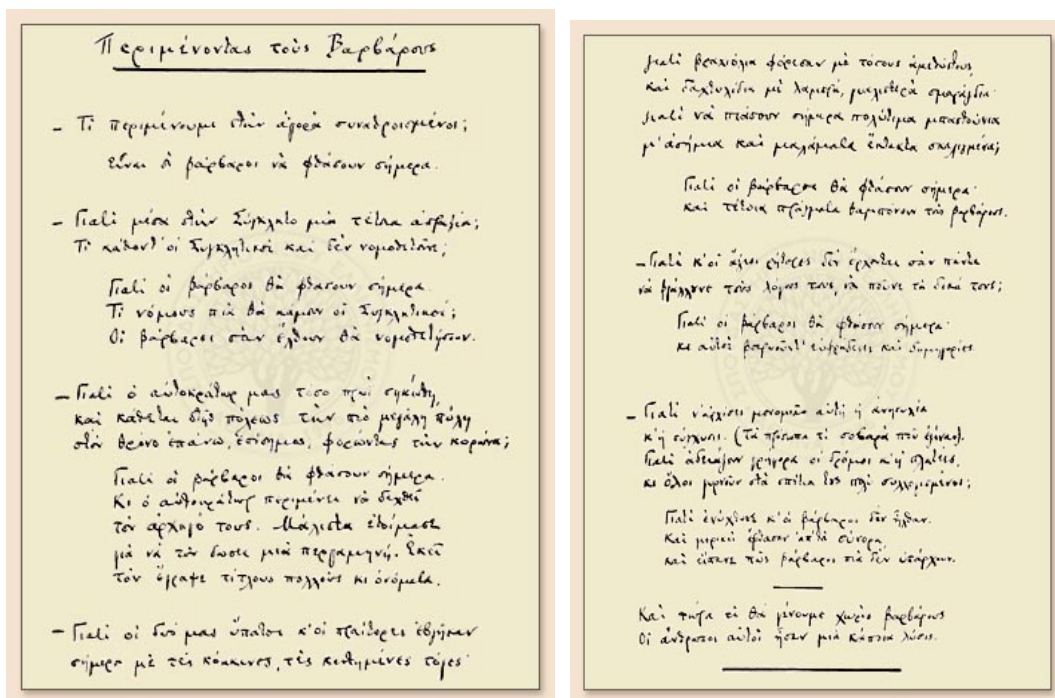 Περιμένοντας τοὺς Βαρβάρους
– Τί περιμένουμε στὴν ἀγορὰ συναθροισμένοι;
Εἶναι οἱ βάρβαροι νὰ φθάσουν σήμερα.
– Γιατὶ μέσα στὴν Σύγκλητο μιὰ τέτοια ἀπραξία;
Τί κάθοντ' οἱ Συγκλητικοὶ καὶ δὲν νομοθετοῦνε;
Γιατὶ οἱ βάρβαροι θὰ φθάσουν σήμερα.
Τί νόμους πιὰ θὰ κάμουν οἱ Συγκλητικοί;
Οἱ βάρβαροι σὰν ἔλθουν θὰ νομοθετήσουν.
– Γιατὶ ὁ αὐτοκράτωρ μας τόσο πρωῒ σηκώθη,
καὶ κάθεται στῆς πόλεως τὴν πιὸ μεγάλη πύλη
στὸν θρόνο ἐπάνω, ἐπίσημος, φορώντας τὴν κορώνα;
Γιατὶ οἱ βάρβαροι θὰ φθάσουν σήμερα.
Κι ὁ αὐτοκράτωρ περιμένει νὰ δεχθεῖ
τὸν ἀρχηγό τους. Μάλιστα ἑτοίμασε
γιὰ νὰ τὸν δώσει μιὰ περγαμηνή. Ἐκεῖ
τὸν ἔγραψε τίτλους πολλοὺς κι ὀνόματα.
– Γιατὶ οἱ δυό μας ὕπατοι κ' οἱ πραίτορες ἐβγῆκαν
σήμερα μὲ τὲς κόκκινες, τὲς κεντημένες τόγες·
γιατὶ βραχιόλια φόρεσαν μὲ τόσους ἀμεθύστους,
καὶ δαχτυλίδια μὲ λαμπρά, γυαλιστερὰ σμαράγδια·
γιατὶ νὰ πιάσουν σήμερα πολύτιμα μπαστούνια
μ' ἀσήμια καὶ μαλάματα ἔκτακτα σκαλιγμένα;
Γιατὶ οἱ βάρβαροι θὰ φθάσουν σήμερα·
καὶ τέτοια πράγματα θαμπόνουν τοὺς βαρβάρους.
– Γιατὶ κ' οἱ ἄξιοι ρήτορες δὲν ἔρχονται σὰν πάντα
νὰ βγάλλουνε τοὺς λόγους τους, νὰ ποῦνε τὰ δικά τους;
Γιατὶ οἱ βάρβαροι θὰ φθάσουν σήμερα·
κι αὐτοὶ βαριοῦντ' εὐφράδειες καὶ δημηγορίες.
– Γιατὶ ν' ἀρχίσει μονομιᾶς αὐτὴ ἡ ἀνησυχία
κ' ἡ σύγχυσις. (Τὰ πρόσωπα τί σοβαρὰ ποὺ ἐγίναν).
Γιατὶ ἀδειάζουν γρήγορα οἱ δρόμοι κ' ἡ πλατέες,
κι ὅλοι γυρνοῦν στὰ σπίτια τους πολὺ συλλογισμένοι;
Γιατὶ ἐνύχτωσε κ' οἱ βάρβαροι δὲν ἦλθαν.
Καὶ μερικοὶ ἔφθασαν ἀπ' τὰ σύνορα,
καὶ εἴπανε πὼς βάρβαροι πιὰ δὲν ὑπάρχουν.
Καὶ τώρα τί θὰ γένουμε χωρὶς βαρβάρους.
Οἱ ἄνθρωποι αὐτοὶ ἦσαν μιὰ κάποια λύσις.